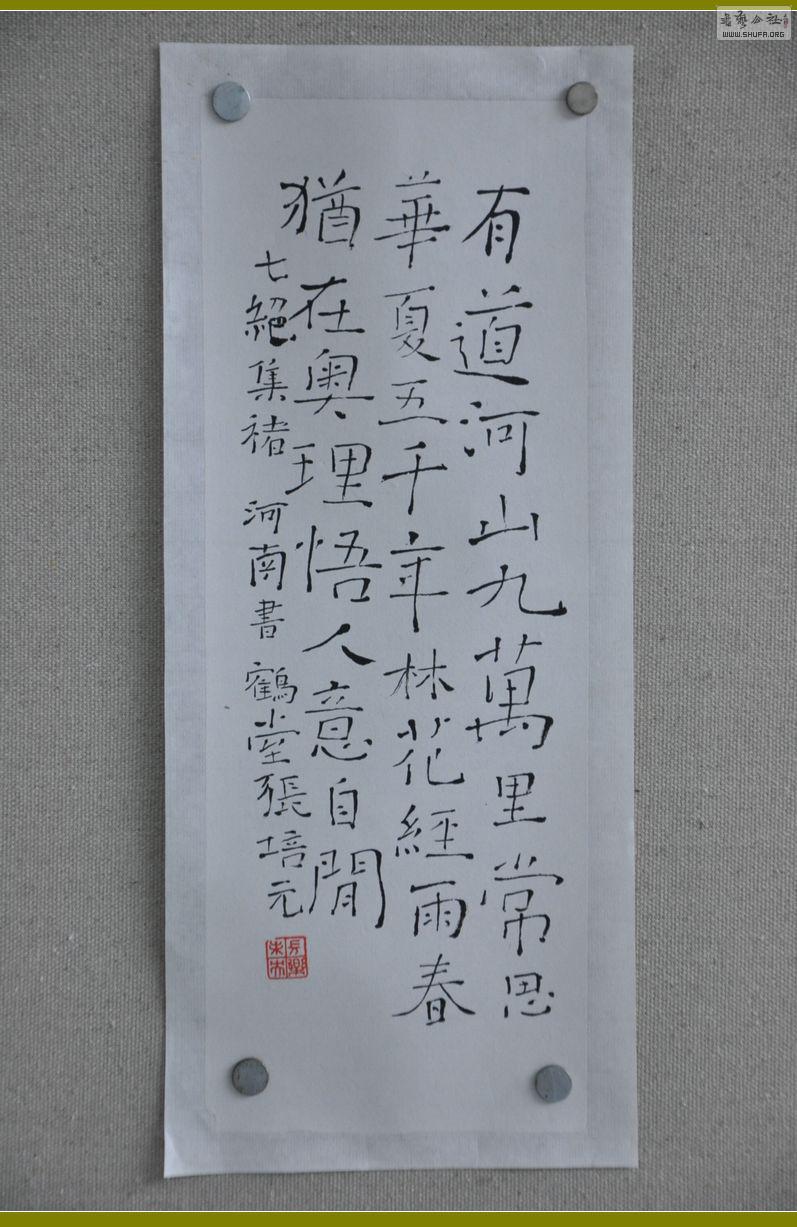 有道河山九萬里常思
華夏五千年林花經雨春
猶在奧理悟人意自閒
七絕集褚河南書鶴堂張培元
WWW.SHUFA.ORG